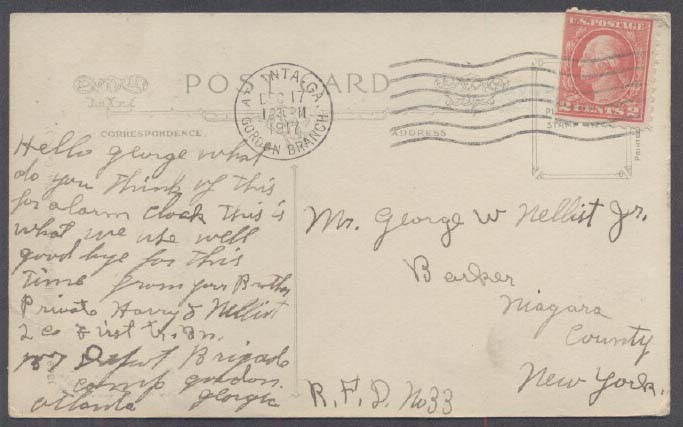 POST CARD
ATLANTA, GA.
DEC 17
12 30 PM
1917
GORDON BRANCH
U.S. POSTAGE
2 CENTS 2
CORRESPONDENCE
ADDRESS
Hello george what
do you think of this
for alarm clock this is
what we use well
good bye for this
time from your Brother
Private Harry J Nellist
2 co First tr. Bn.
157 Depot Brigade
camp gordon.
atlanta georgia
Mr. George W Nellist Jr.
Barker
Niagara
County
New York.
R.F.D. No 33